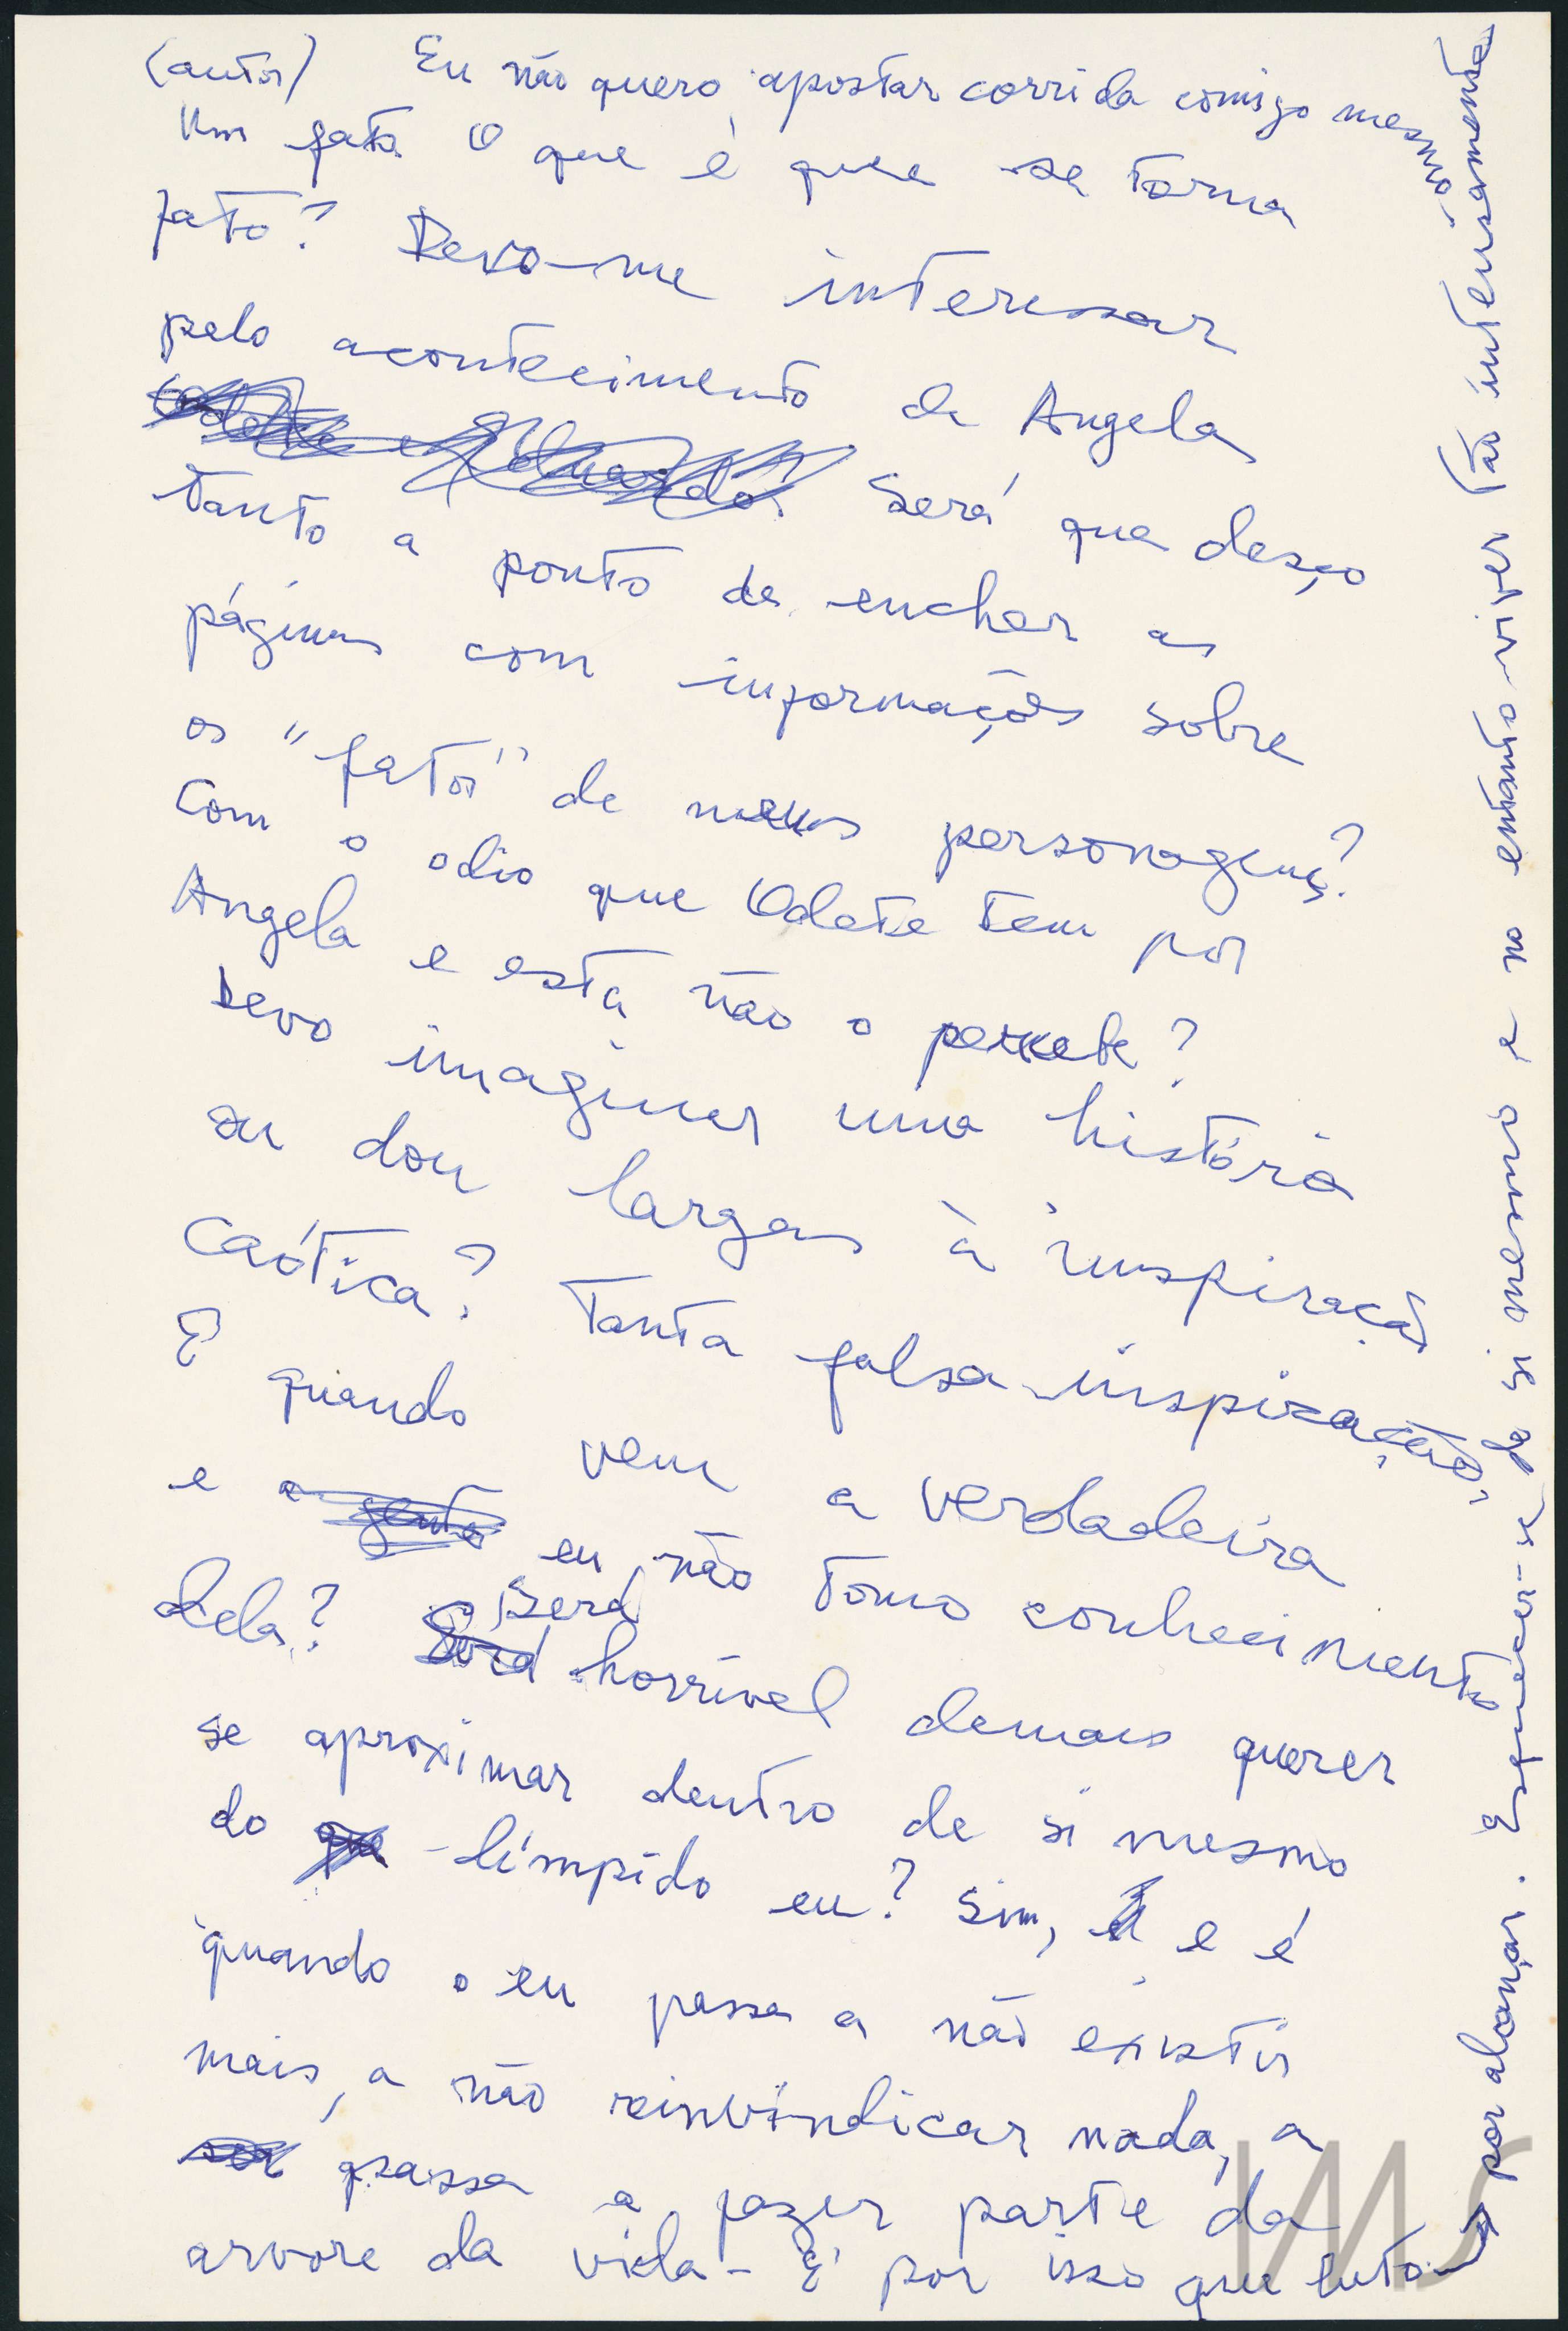 (autor) Eu não quero apostar corrida comigo mesmo.
Um fato. O que é que se torna
fato? Devo-me interessar
pelo acontecimento de Angela
Odete e Eduardo? Será que desço
tanto a ponto de encher as
páginas com informações sobre
os "fatos" de meus personagens?
Com o odio que Odete tem por
Angela e esta não o percebe?
Devo imaginar uma história
ou dou largas à inspiração
caótica? Tanta falsa inspiração.
E quando vem a verdadeira
e a gente eu não tomo conhecimento
dela? Será Será horrível demais querer
se aproximar dentro de si mesmo
do que límpido eu? Sim, e é
quando o eu passa a não existir
mais, a não reinvindicar nada, a
passa a fazer parte da
arvore da vida - É por isso que luto
por alcançar. Esquecer-se de si mesmo e no entanto viver tão intensamente
IMS